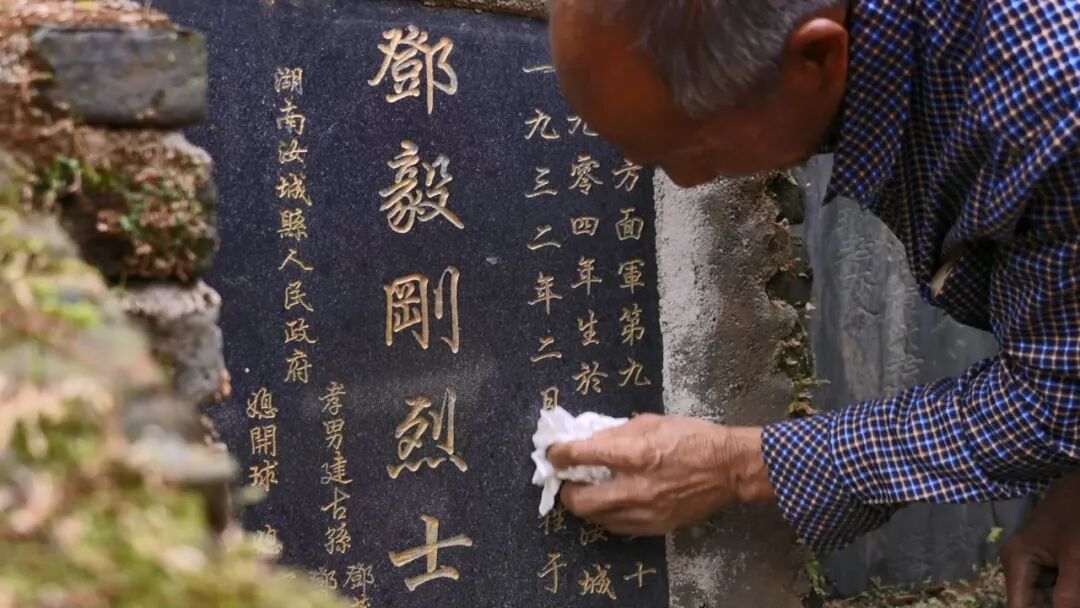 方面軍第九十
九零四年生於汝城
一九三二年二月于
鄧毅剛烈士
孝男建古孫鄧
湖南汝城縣人民政府
媳開球